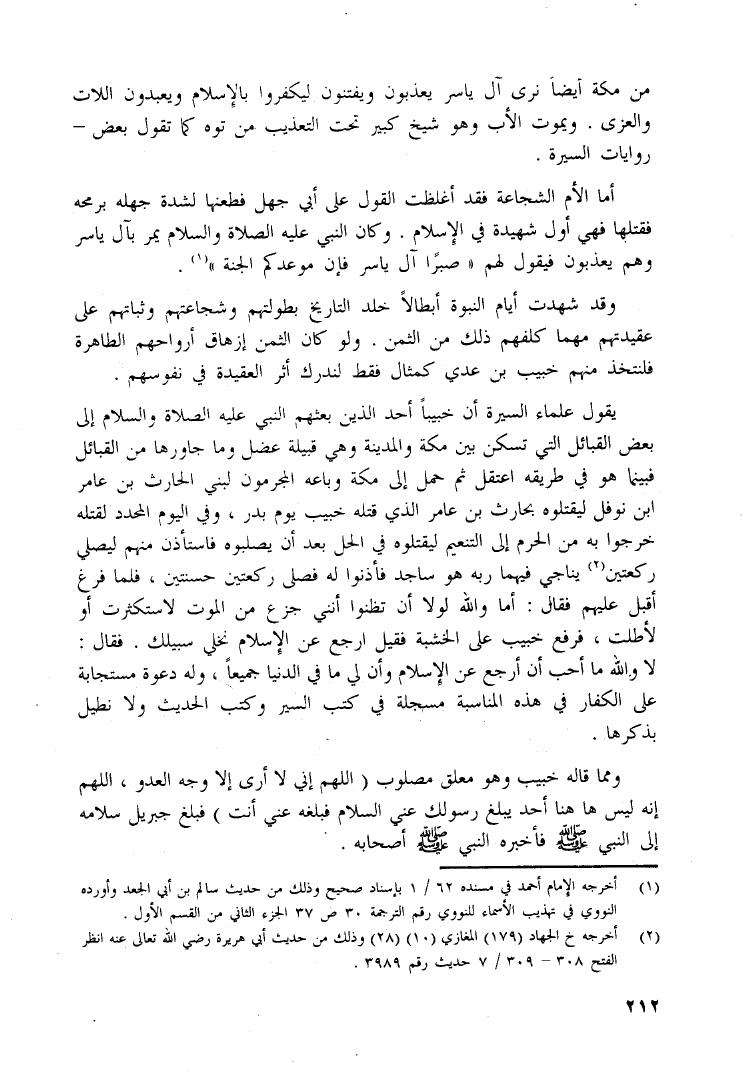 من مكة أيضاً نرى آل ياسر يعذبون ويفتنون ليكفروا بالإسلام ويعبدون اللات
والعزى . ويموت الأب وهو شيخ كبير تحت التعذيب من توه كما تقول بعض –
روايات السيرة .
أما الأم الشجاعة فقد أغلظت القول على أبي جهل فطعنها لشدة جهله برمحه
فقتلها فهي أول شهيدة في الإسلام . وكان النبي عليه الصلاة والسلام يمر بآل ياسر
وهم يعذبون فيقول لهم « صبرًا آل ياسر فإن موعدكم الجنة »(١) .
وقد شهدت أيام النبوة أبطالاً خلد التاريخ بطولتهم وشجاعتهم وثباتهم على
عقيدتهم مهما كلفهم ذلك من الثمن . ولو كان الثمن إزهاق أرواحهم الطاهرة
فلنتخذ منهم خبيب بن عدي كمثال فقط لندرك أثر العقيدة في نفوسهم .
يقول علماء السيرة أن خبيباً أحد الذين بعثهم النبي عليه الصلاة والسلام إلى
بعض القبائل التي تسكن بين مكة والمدينة وهي قبيلة عضل وما جاورها من القبائل
فبينما هو في طريقه اعتقل ثم حمل إلى مكة وباعه المجرمون لبني الحارث بن عامر
ابن نوفل ليقتلوه بحارث بن عامر الذي قتله خبيب يوم بدر ، وفي اليوم المحدد لقتله
خرجوا به من الحرم إلى التنعيم ليقتلوه في الحل بعد أن يصلبوه فاستأذن منهم ليصلي
ركعتين(٢) يناجي فيهما ربه هو ساجد فأذنوا له فصلى ركعتين حسنتين ، فلما فرغ
أقبل عليهم فقال : أما والله لولا أن تظنوا أنني جزع من الموت لاستكثرت أو
لأطلت ، فرفع خبيب على الخشبة فقيل ارجع عن الإسلام نخلي سبيلك . فقال :
لا والله ما أحب أن أرجع عن الإسلام وأن لي ما في الدنيا جميعاً ، وله دعوة مستجابة
على الكفار في هذه المناسبة مسجلة في كتب السير وكتب الحديث ولا نطيل
بذكرها .
ومما قاله خبيب وهو معلق مصلوب ( اللهم إني لا أرى إلا وجه العدو ، اللهم
إنه ليس ها هنا أحد يبلغ رسولك عني السلام فبلغه عني أنت ) فبلغ جبريل سلامه
إلى النبي ﷺ فأخبره النبي ﷺ أصحابه .
(١) أخرجه الإمام أحمد في مسنده ٦٢ / ١ بإسناد صحيح وذلك من حديث سالم بن أبي الجعد وأورده
النووي في تهذيب الأسماء للنووي رقم الترجمة ٣٠ ص ٣٧ الجزء الثاني من القسم الأول .
(٢) أخرجه خ الجهاد (١٧٩) المغازي (١٠) (٢٨) وذلك من حديث أبي هريرة رضي الله تعالى عنه انظر
الفتح ٣٠٨ – ٣٠٩ / ٧ حديث رقم ٣٩٨٩ .
٢١٢